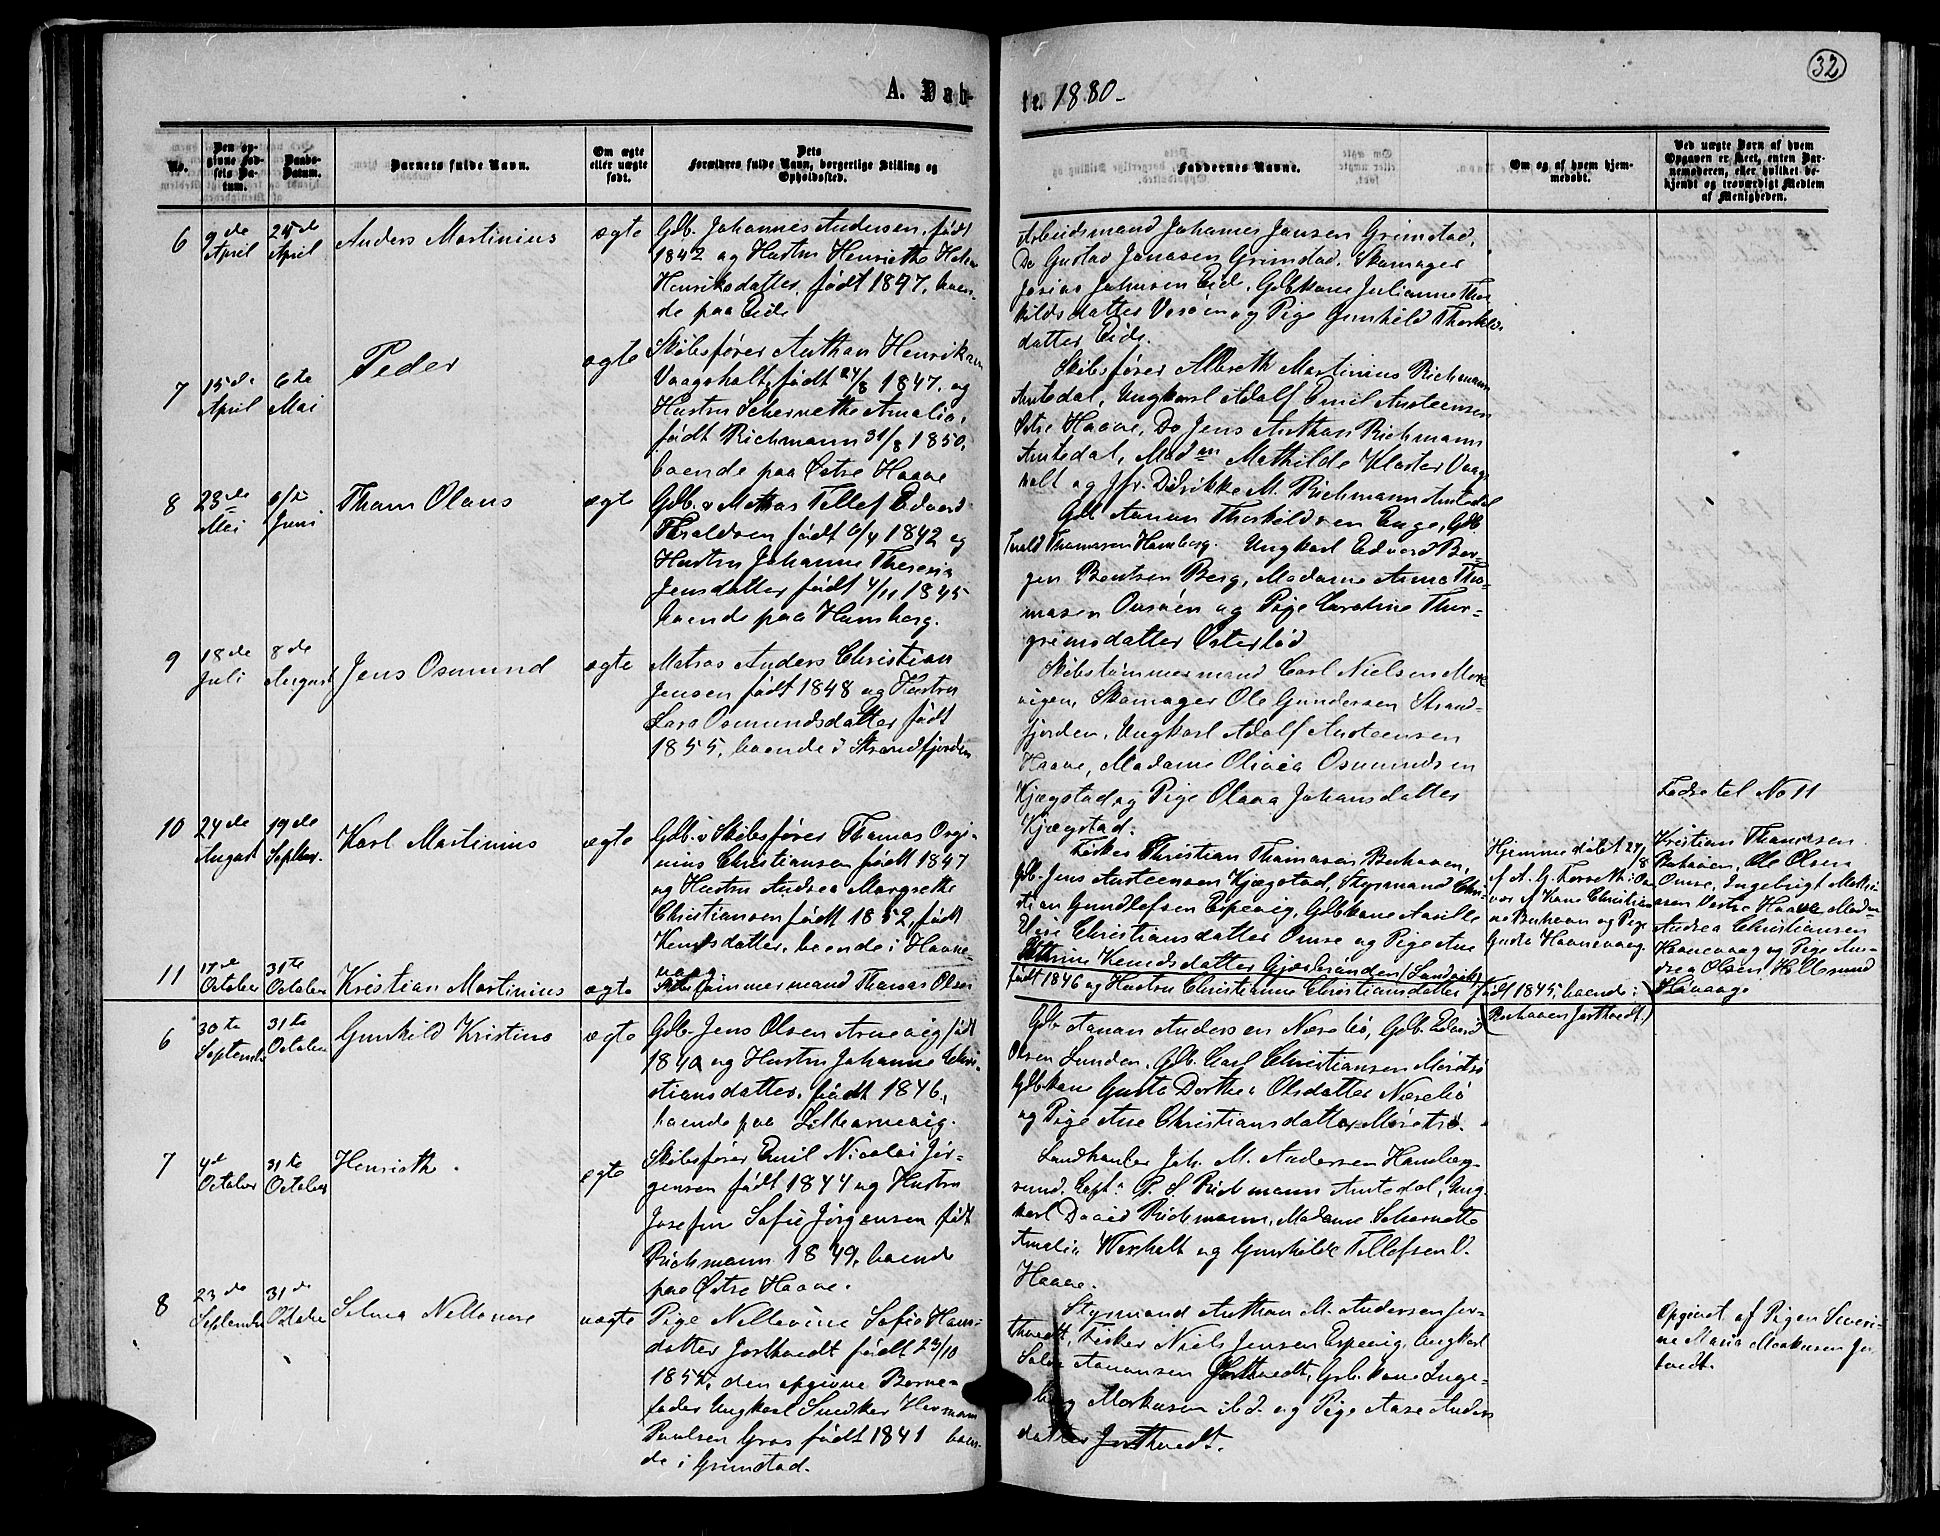 32
A. Dab-
te. 1880-
No.
Den op-
givne Fød-
sels Da-
tum.
Daabs-
Datum.
Barnets fulde Navn.
Om ægte
eller uægte
født.
Dets
Forældres fulde Navn, borgerlige Stilling og
Opholdssted.
Faddernes Navne.
Om og af hvem hjem-
medøbt.
Ved uægte Børn af hvem
Opgaven er skeet, enten Bar-
nemoderen, eller hvilket be-
kjendt og troværdigt Medlem
af Menigheden.
6
9de
April
25de
April
Anders Martinius
ægte
Gdb. Johannes Andersen, født
1842 og Hustru Henriette
Henriksdatter, født 1847, boen-
de paa Eide
Arbeidsmand Johannes Jansen Grimstad,
Do Gustav Jonasen Grimstad. Skomager
Josias Johnsen Eide, Gdbkone Julianne Thor
kildsdatter Vesøen og Pige Gunhild Thorkilds
datter Eide.
7
15de
April
6te
Mai
Peder
ægte
Skibsfører Anthon Henriksen
Vaagsholt, født 24/8 1847, og
Hustru Schernette Amalia,
født Richmann 31/8 1850,
boende paa Østre Haave
Skibsfører Albreth Martinius Richmann
Amtedal, Ungkarl Adolf Emil Austeensen
Østre Haave, Do Jens Anthon Richmann
Amtedal, Madm Mathilde Klaster Vaags
holt og Jfr. Didrikke M. Richmann Amtedal
8
23de
Mai
6te
Juni
Thom Olaus
ægte
Gdb. & Matros Tellef Edvard
Thraldsen født 6/4 1842 og
Hustru Johanne Theresia
Jensdatter født 4/11 1845
boende paa Homborg.
Gdb Aanon Thorkildsen Enge, Gdb.
Trald Thomasen Homborg. Ungkarl Edvard Ber-
gen Bentsen Berg, Madame Anne Tho-
masen Ousøen og Pige Caroline Thor-
grimsdatter Østerlød
9
18de
Juli
8de
August
Jens Osmund
ægte
Matros Anders Christian
Jensen født 1848 og Hustru
Lara Osmundsdatter født
1855, boende i Strandfjorden
Skibstømmermand Carl Nielsen Mor
vigen, Skomager Ole Gundersen Strand-
fjorden, Ungkarl Adolf Austeensen
Haave, Madame Olivia Osmundsen
Kjægstad og Pige Olava Johansdatter
Kjægstad.
10
24de
August
19de
Septbr.
Karl Martinius
ægte
Gdb. & Skibsfører Thomas Orgi-
nius Christiansen født 1847
og Hustru Andrea Margrethe
Christiansen født 1852, født
Knudsdatter, boende i Haave-
vaag
Fisker Christian Thomasen Buhaven,
Gdb. Jens Austeensen Kjægstad, Styrmand Chri-
stian Gundlefsen Espevig, Gdbkone Aasille
Elise Christiansdatter Omre og Pige Ane
Kathrine Knudsdatter
Hjemmedøbt 27/8
af
Kone Christian
ne Buhaven og Pige
Gusta Haavevaag
Fadre til No 11
Kristian Thomesen
Buhaven, Ole Olsen
Omre, Ingebrigt Mathi
asen Vestre Haave Madm
Andrea Christiansen
Haavevaag og Pige An-
drea Olsen Hillesund
Havaage
11
17de
October
31te
October
Kristian Martinius
ægte
Skibstømmermand Thomas Olsen
født 1846 og Hustru Christianne Christiansdatter født 1845, boende i
Buhaven Jortveit.)
6
30te
September
31te
October
Gunhild Kristine
ægte
Gdb. Jens Olsen Arnevig født
1840 og Hustru Johanne Chri-
stiansdatter, født 1846,
boende paa Lillearnevig.
Gdb Aanon Anderssen Næselø, Gdb. Edvard
Olsen Lunden, Gdb. Carl Christiansen Moretsø
Gdbkone Gusta Dorthea Olsdatter Næselø
og Pige Ane Christiansdatter Moretsø.
7
4de
October
31te
October
Henriette.
ægte
Skibsfører Emil Nicolai Jør-
gensen født 1844 og Hustru
Josefine Sofie Jørgensen født
Richmann 1849, boende
paa Østre Haave.
Landhandler Joh. M. Andersen Homborg-
sund. Capt: P. S. Richmann Amtedal, Ung-
karl David Richmann, Madame Schernette
Amalia Woxholt og Gunhilde Tellefsen V.
Haave.
8
23de
September
31de
October
Selma Nellanore
uægte
Pige Nellevine Sofie Hans-
datter Jortveit født 23/10
1855, den opgivne Barne-
fader Ungkarl Snedker Herman
Paulsen Gros født 1841 boen-
de i Grimstad.
Styrmand Anthon M. Andersen Jor-
tveit, Fisker Niels Jensen Espevig, Ungkarl
Salve Aanonsen Jortveit, Gdb. Kone Inge-
borg Markusen ibd. og Pige Aase Anders
datter Jortveit.
Opgivet af Pigen Severi-
ne Maria Markusen Jor
tveit.